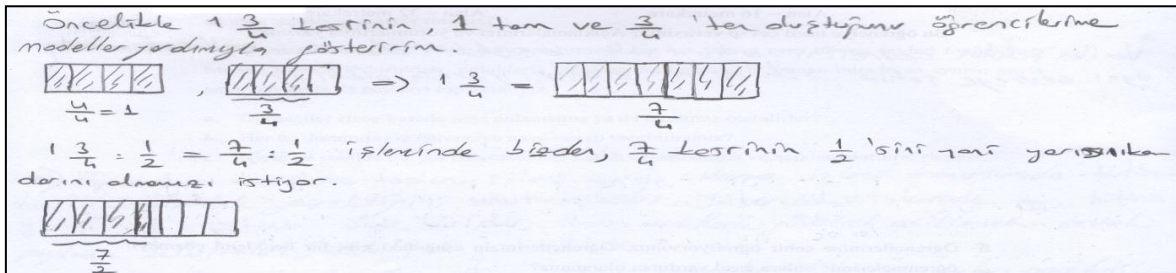 Öncelikle 1 3/4 kesrinin, 1 tam ve 3/4 'ten oluştuğunu öğrencilerime
modeller yardımıyla gösteririm.
4/4 = 1 , 3/4 => 1 3/4 = 7/4
1 3/4 : 1/2 = 7/4 : 1/2 işleminde bizden, 7/4 kesrinin 1/2 'sini yani yarısı ka
darını almamızı istiyor.
7/2